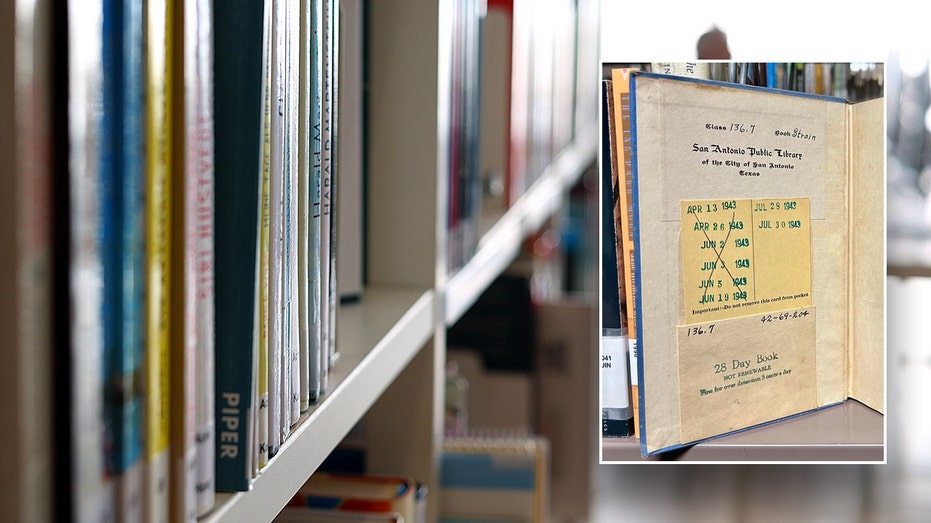 SIRI HUSTVEDT
PIPER
Class 136.7 Book Strain
San Antonio Public Library
of the City of San Antonio
Texas
APR 13 1943 JUL 28 1943
APR 26 1943 JUL 30 1943
JUN 2 1943
JUN 3 1943
JUN 5 1943
JUN 19 1943
Important:-Do not remove this card from pocket
136.7 42-69-204
28 Day Book
NOT RENEWABLE
Fine for over detention 3 cents a day
041